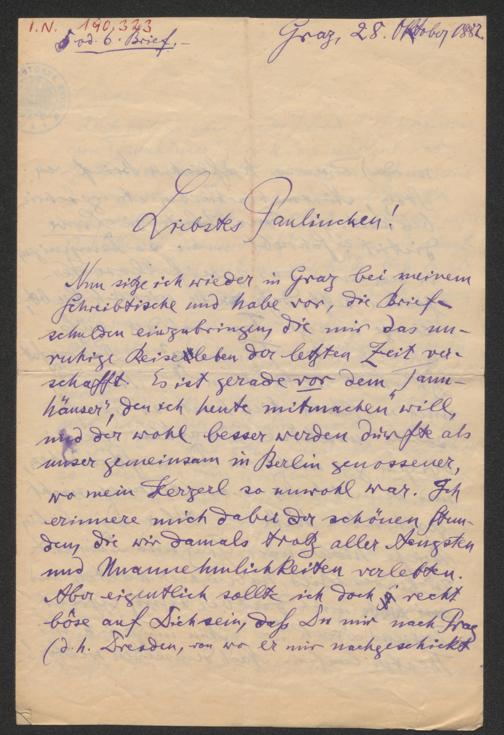 I.N. 190,323
5 od. 6. Brief.-
Graz, 28. Oktober 1882.
Liebstes Paulinchen!
Nun sitze ich wieder in Graz bei meinem
Schreibtische und habe vor, die Brief-
schulden einzubringen, die mir das un-
ruhige Reiseleben der letzten Zeit ver-
schafft. Es ist gerade vor dem „Tann-
häuser", den ich heute „mitmachen" will,
und der wohl besser werden dürfte als
unser gemeinsam in Berlin genossener,
wo mein Herzerl so unwohl war. Ich
erinnere mich dabei der schönen Stun-
den, die wir damals trotz aller Aengsten
und Unannehmlichkeiten verlebten.
Aber eigentlich sollte ich doch recht
böse auf Dich sein, daß Du mir nach Prag
(d.h. Dresden, von wo er mir nachgeschickt